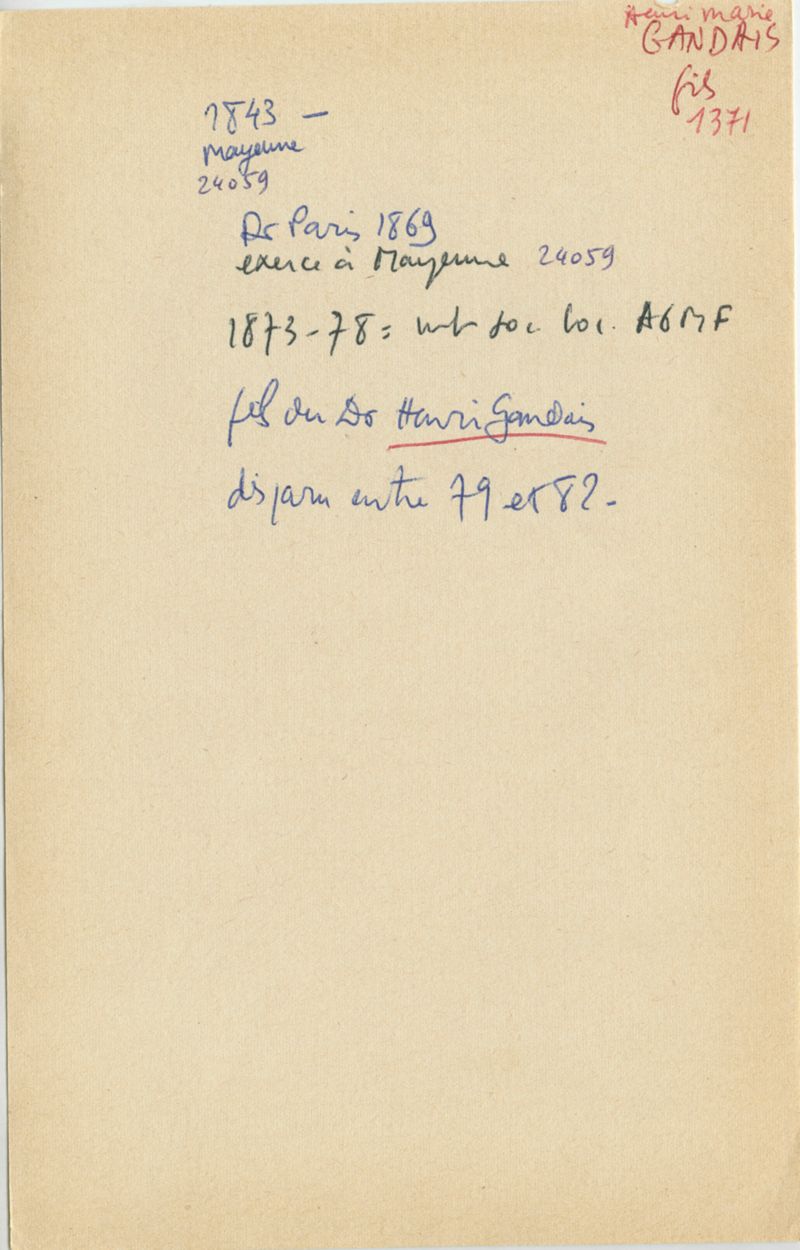 Henri Marie
GANDAIS
fils
1371
1843 –
Mayenne
24059
Dr Paris 1869
exerce à Mayenne 24059
1873-78 = mb soc loc. AGMF
fils du Dr Henri Gandais
disparu entre 79 et 82.